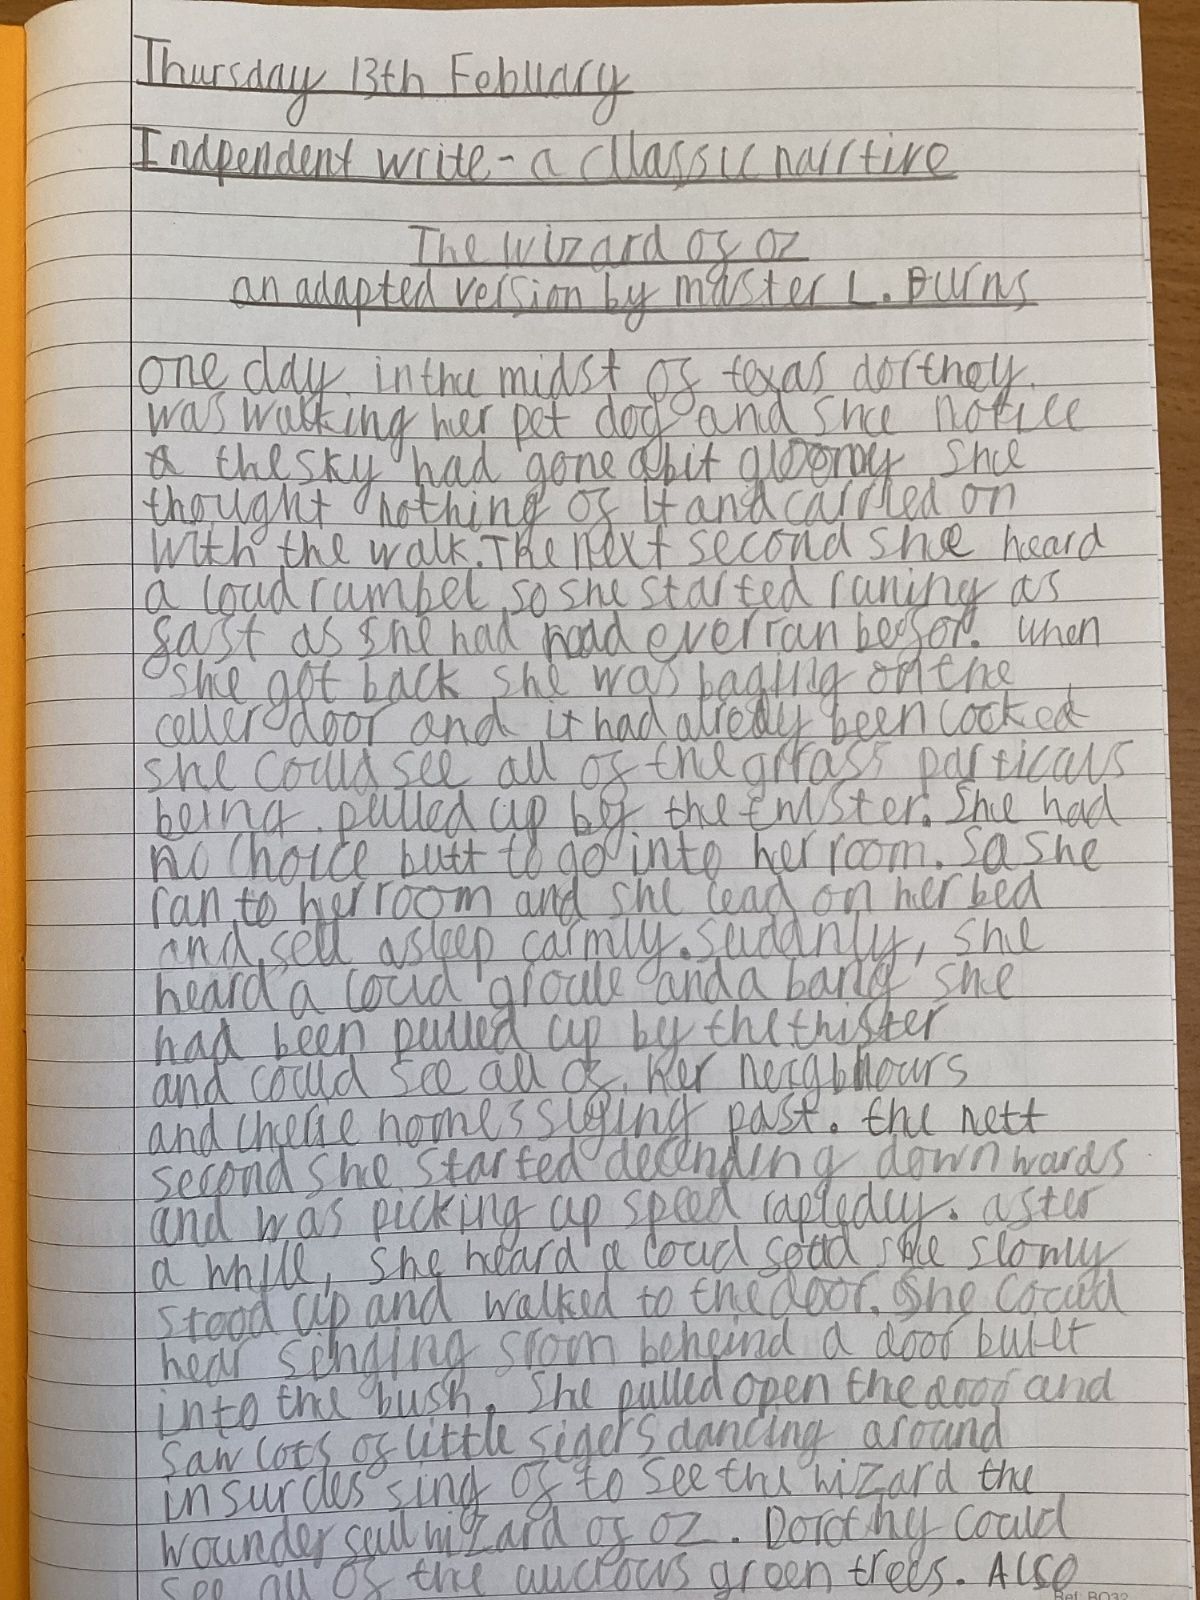 Thursday 13th Febuary
Indpendent write - a cllassic narrtive
The wizard of oz
an adapted version by master L. Burns
one day in the midst of texas dorthey
was walking her pet dog and she notice
the sky had gone a bit gloomy she
thought nothing of it and carried on
with the walk. The next second she heard
a loud rumbel so she started runing as
fast as she had ever ran befor. when
she got back she was baging on the
celler door and it had alredy been locked
she could see all of the grass particals
being pulled up by the twister. She had
no choice butt to go into her room. So she
ran to her room and she lead on her bed
and fell asleep carmly. Suddanly, she
heard a loud groule and a bang she
had been pulled up by the twister
and could see all of her neighbours
and there homes flying past. the next
second she started decending downwards
and was picking up speed rapledly. after
a while, she heard a loud she slowly
stood up and walked to the door. She could
hear singing from beheind a door built
into the bush. She pulled open the door and
saw lots of little figers dancing around
in surcles sing of to see the wizard the
wounderfull wizard of oz. Dorothy could
see all of the green trees. Also
Ref: BO32